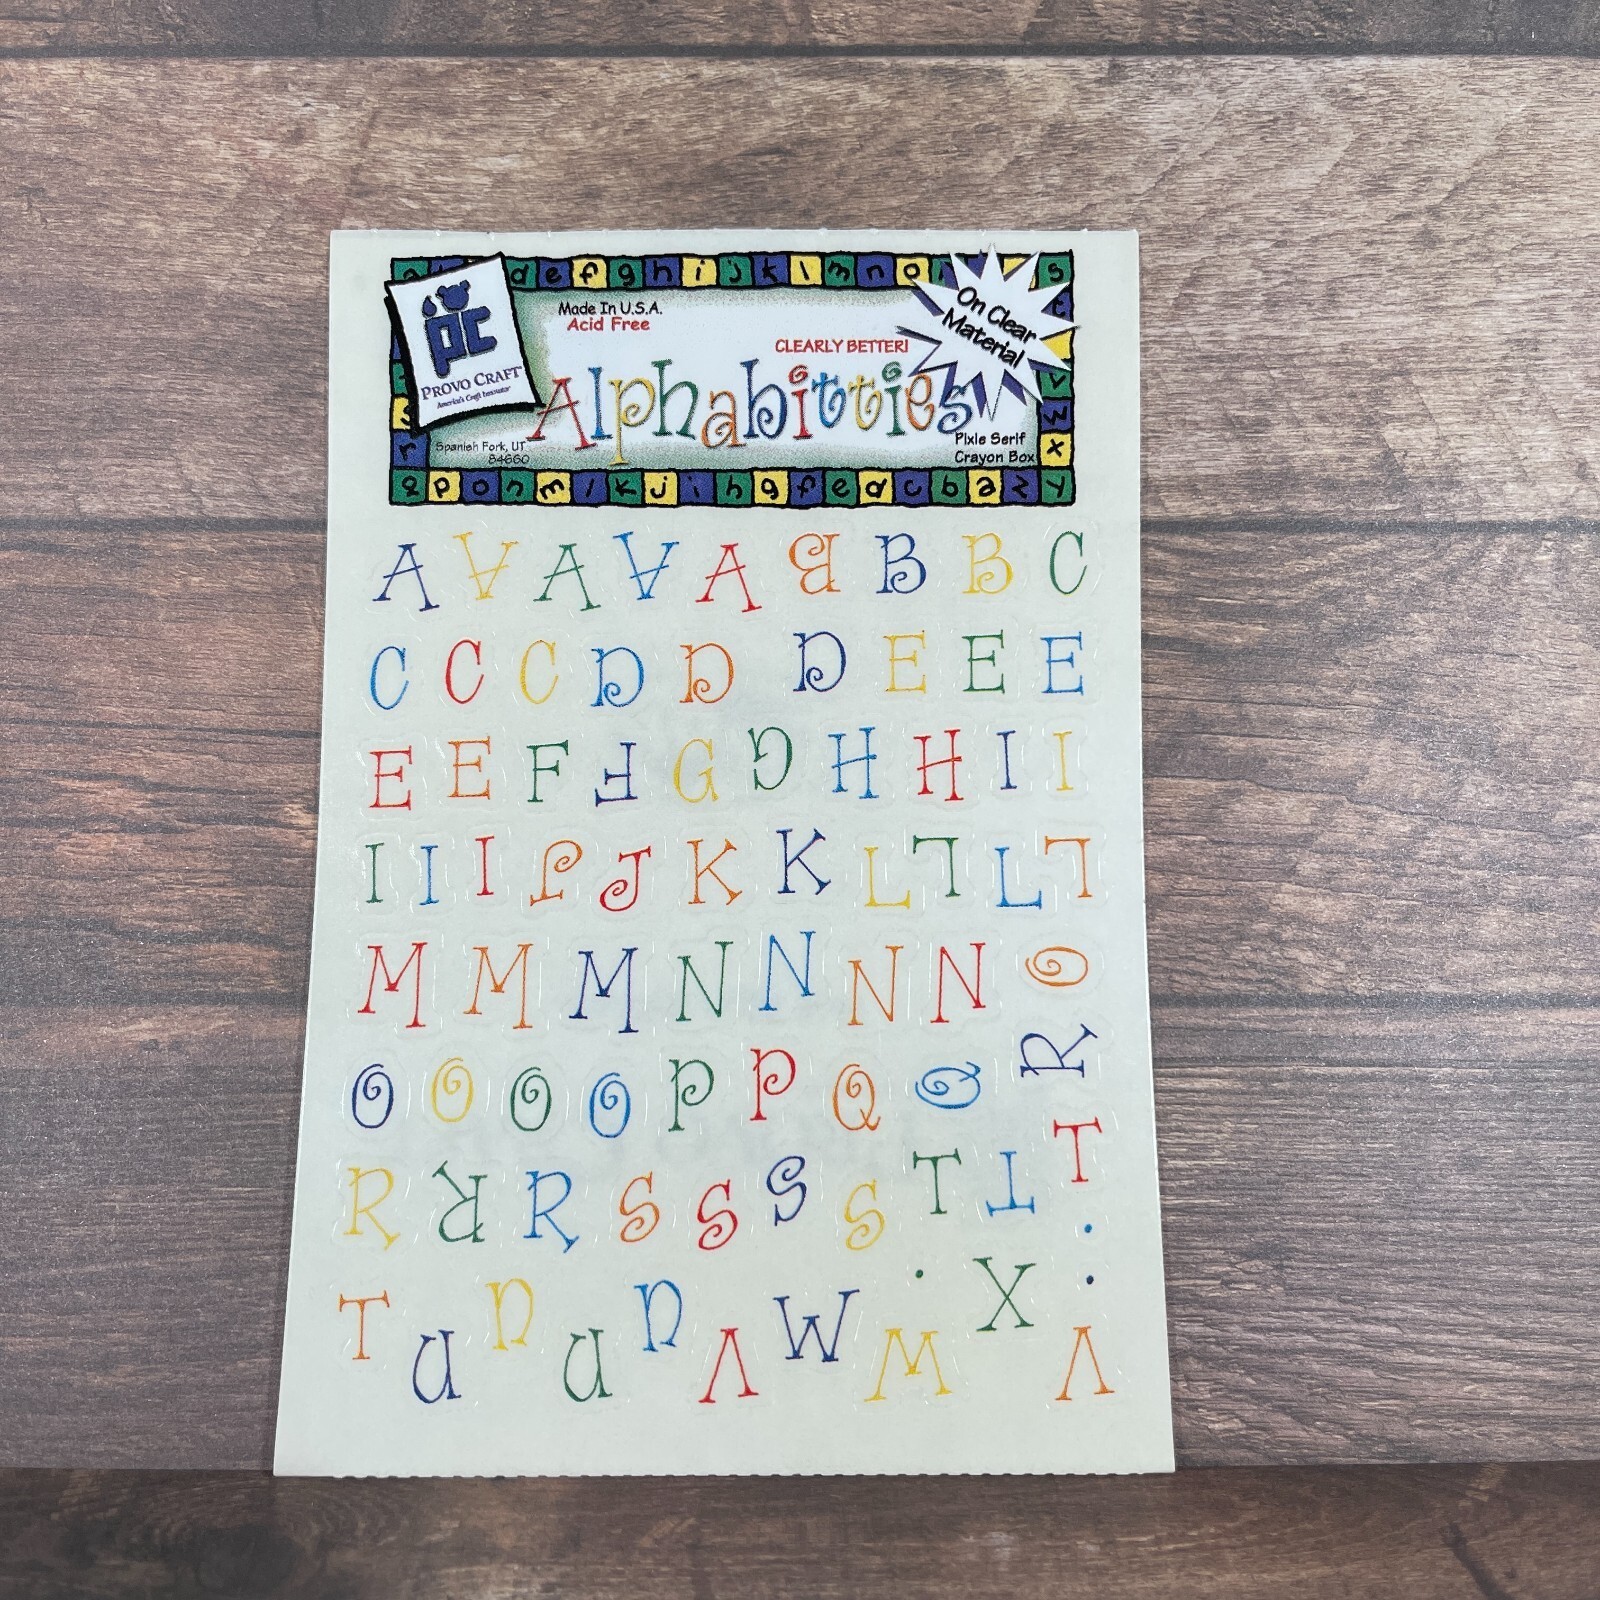 d e f g h i j k l m n o s
pc
PROVO CRAFT
America's Craft Innovator
Made In U.S.A.
Acid Free
CLEARLY BETTER!
On Clear
Material
Alphabitties
Spanish Fork, UT
84660
Pixie Serif
Crayon Box
v
w
x
r
q p o n m l k j i h g f e d c b a z y
A A A A A B B B C
C C C C D D D E E E
E E F F G G H H I I
I I I J J K K L L L L
M M M N N N N O
O O O O P P Q Q R
R R R S S S S T T T
T U U U U V W W X V